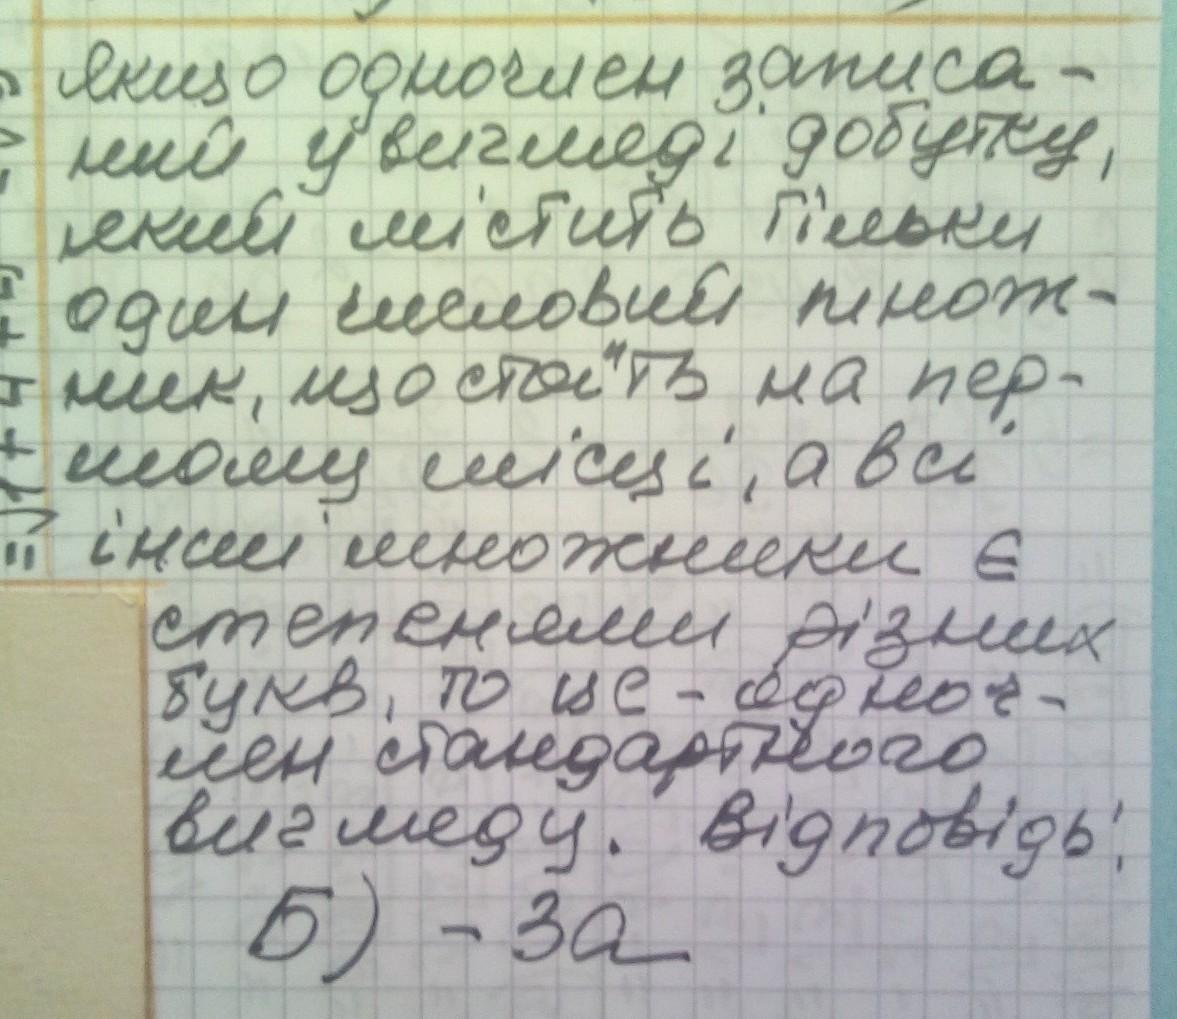 Якщо одночлен записа-
ний у вигляді добутку,
який містить тільки
один числовий множ-
ник, що стоїть на пер-
шому місці, а всі
інші множники є
степенями різних
букв, то це - одноч-
лен стандартного
вигляду. Відповідь:
Б) - 3а